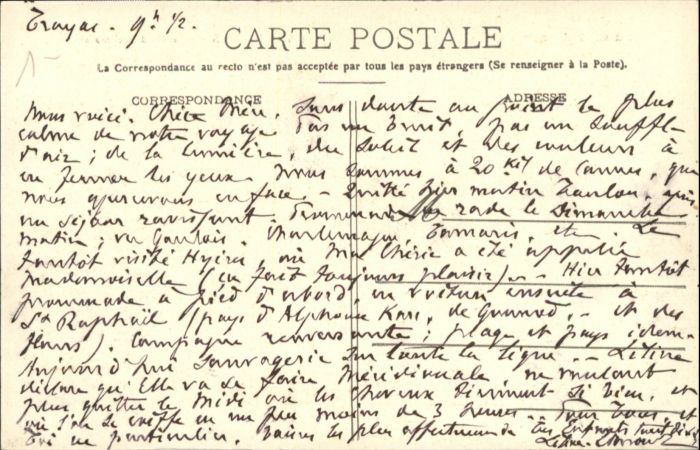 Trayas. 9h 1/2.
CARTE POSTALE
La Correspondance au recto n'est pas acceptée par tous les pays étrangers (Se renseigner à la Poste).
CORRESPONDANCE
ADRESSE
Nous voici, Chère, sans doute au point le plus
calme de notre voyage Pas un bruit, pas un souffle
d'air ; de la lumière, du soleil et des couleurs à
en fermer les yeux Nous sommes à 20 kil de Cannes, que
nous apercevons en face. - Quitté hier matin Toulon, après
un séjour ravissant. Promenade en rade le Dimanche
matin ; vu Gaulois, Charlemagne, Tamaris, etc. Le
tantôt visité Hyères, où Ma Chérie a été appelée
Mademoiselle (ça fait toujours plaisir). - Hier tantôt
promenade à pied d'abord, en voiture ensuite à
St Raphaël (pays d'Alphonse Karr, de Gounod, - et des
fleurs). Campagne renversante ; plage et pays idem.
Aujourd'hui sauvagerie sur toute la ligne. -
déclare qu'Elle va se faire Méridionale ne voulant
plus quitter le Midi où les cheveux tiennent si bien, et
où l'on se coiffe en un peu moins de 3 heures. - Pour tous, et
Toi en particulier, baisers les plus affectueux de tes Enfants